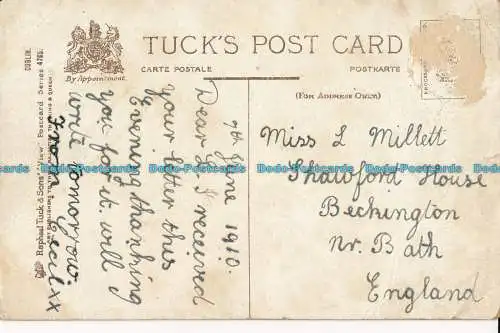 TUCK'S POST CARD
By Appointment.
CARTE POSTALE
POSTKARTE
(FOR ADDRESS ONLY)
DUBLIN.
Raphael Tuck & Sons' "View" Postcard Series 4765.
7th June 1910.
Dear L I received
your letter this
Evening thanking
you for it. will
write tomorrow
From
Miss L Millett
Shawford House
Beckington
Nr. Bath
England
www.bode-postcards.com